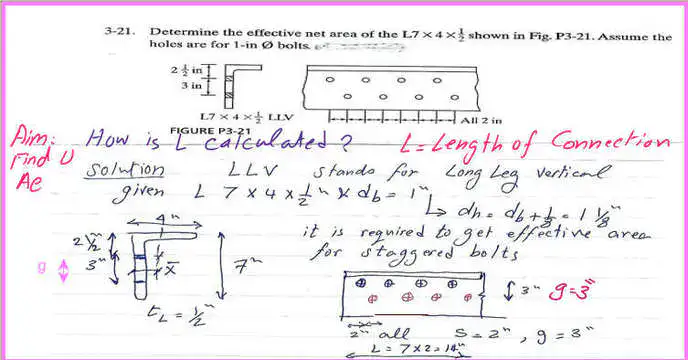 3-21. Determine the effective net area of the L7 × 4 × ½ shown in Fig. P3-21. Assume the
holes are for 1-in Ø bolts.
2 ½ in
3 in
L7 × 4 × ½ LLV
All 2 in
FIGURE P3-21
Aim:
Find U
Ae
How is L calculated?
L = Length of Connection
Solution
LLV stands for Long Leg vertical
given L 7 x 4 x ½" & db = 1"
↳ dh = db + ⅛ = 1 ⅛"
it is required to get effective area
for staggered bolts
4"
2 ½"
3"
g
x̄
7"
tL = ½"
3"
g=3"
2" all
S = 2", g = 3"
L = 7x2 = 14"